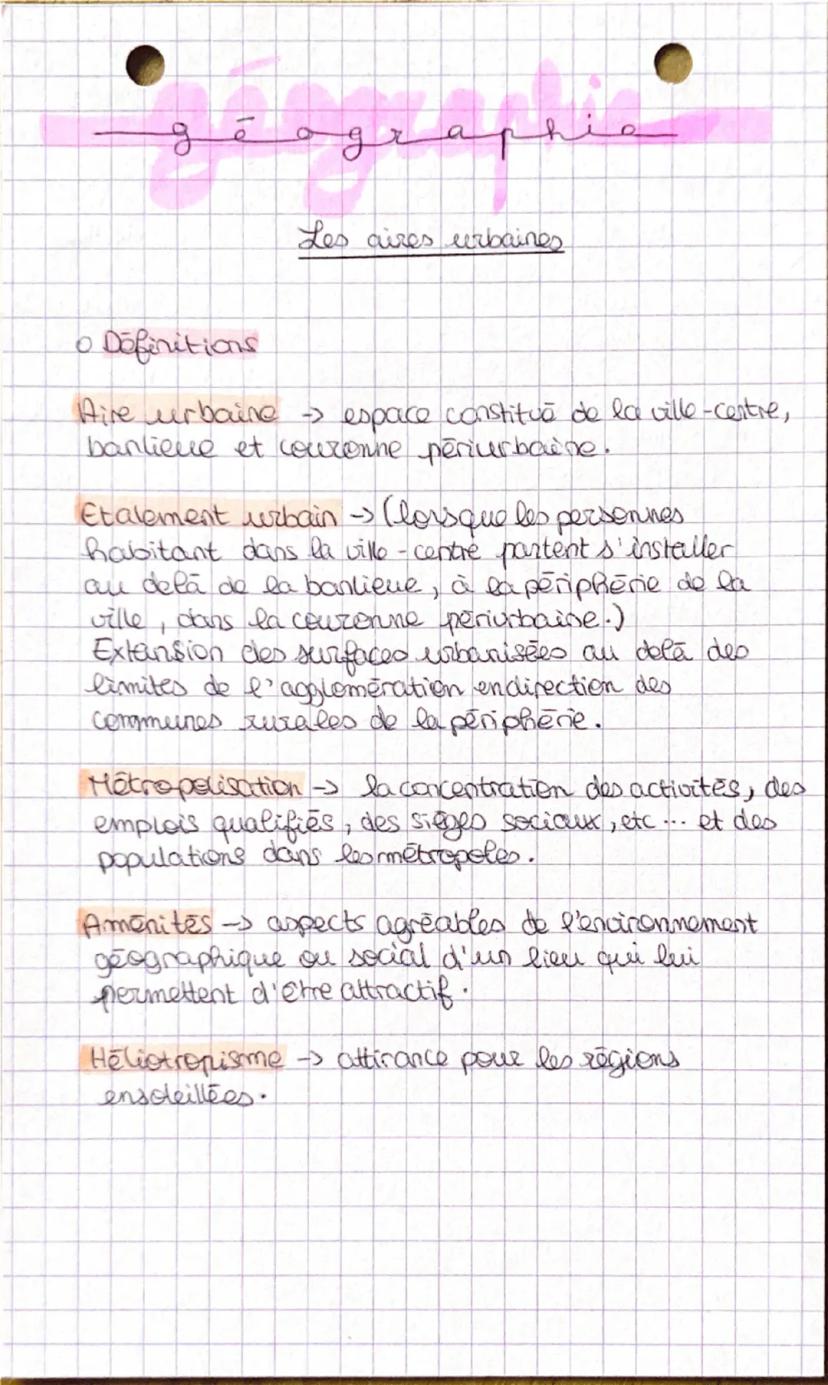 géographie
géographie
Les aires urbaines
o Définitions
Aire urbaine -> espace constitué de la ville-centre,
banlieue et couronne périurbaine.
Etalement urbain -> (lorsque les personnes
habitant dans la ville-centre partent s'installer
au delà de la banlieue, à la périphérie de la
ville, dans la couronne périurbaine.)
Extension des surfaces urbanisées au delà des
limites de l'agglomération en direction des
communes rurales de la périphérie.
Métropolisation -> la concentration des activités, des
emplois qualifiés, des sièges sociaux, etc ... et des
populations dans les métropoles.
Aménités -> aspects agréables de l'environnement
géographique ou social d'un lieu qui lui
permettent d'être attractif.
Héliotropisme -> attirance pour les régions
ensoleillées.